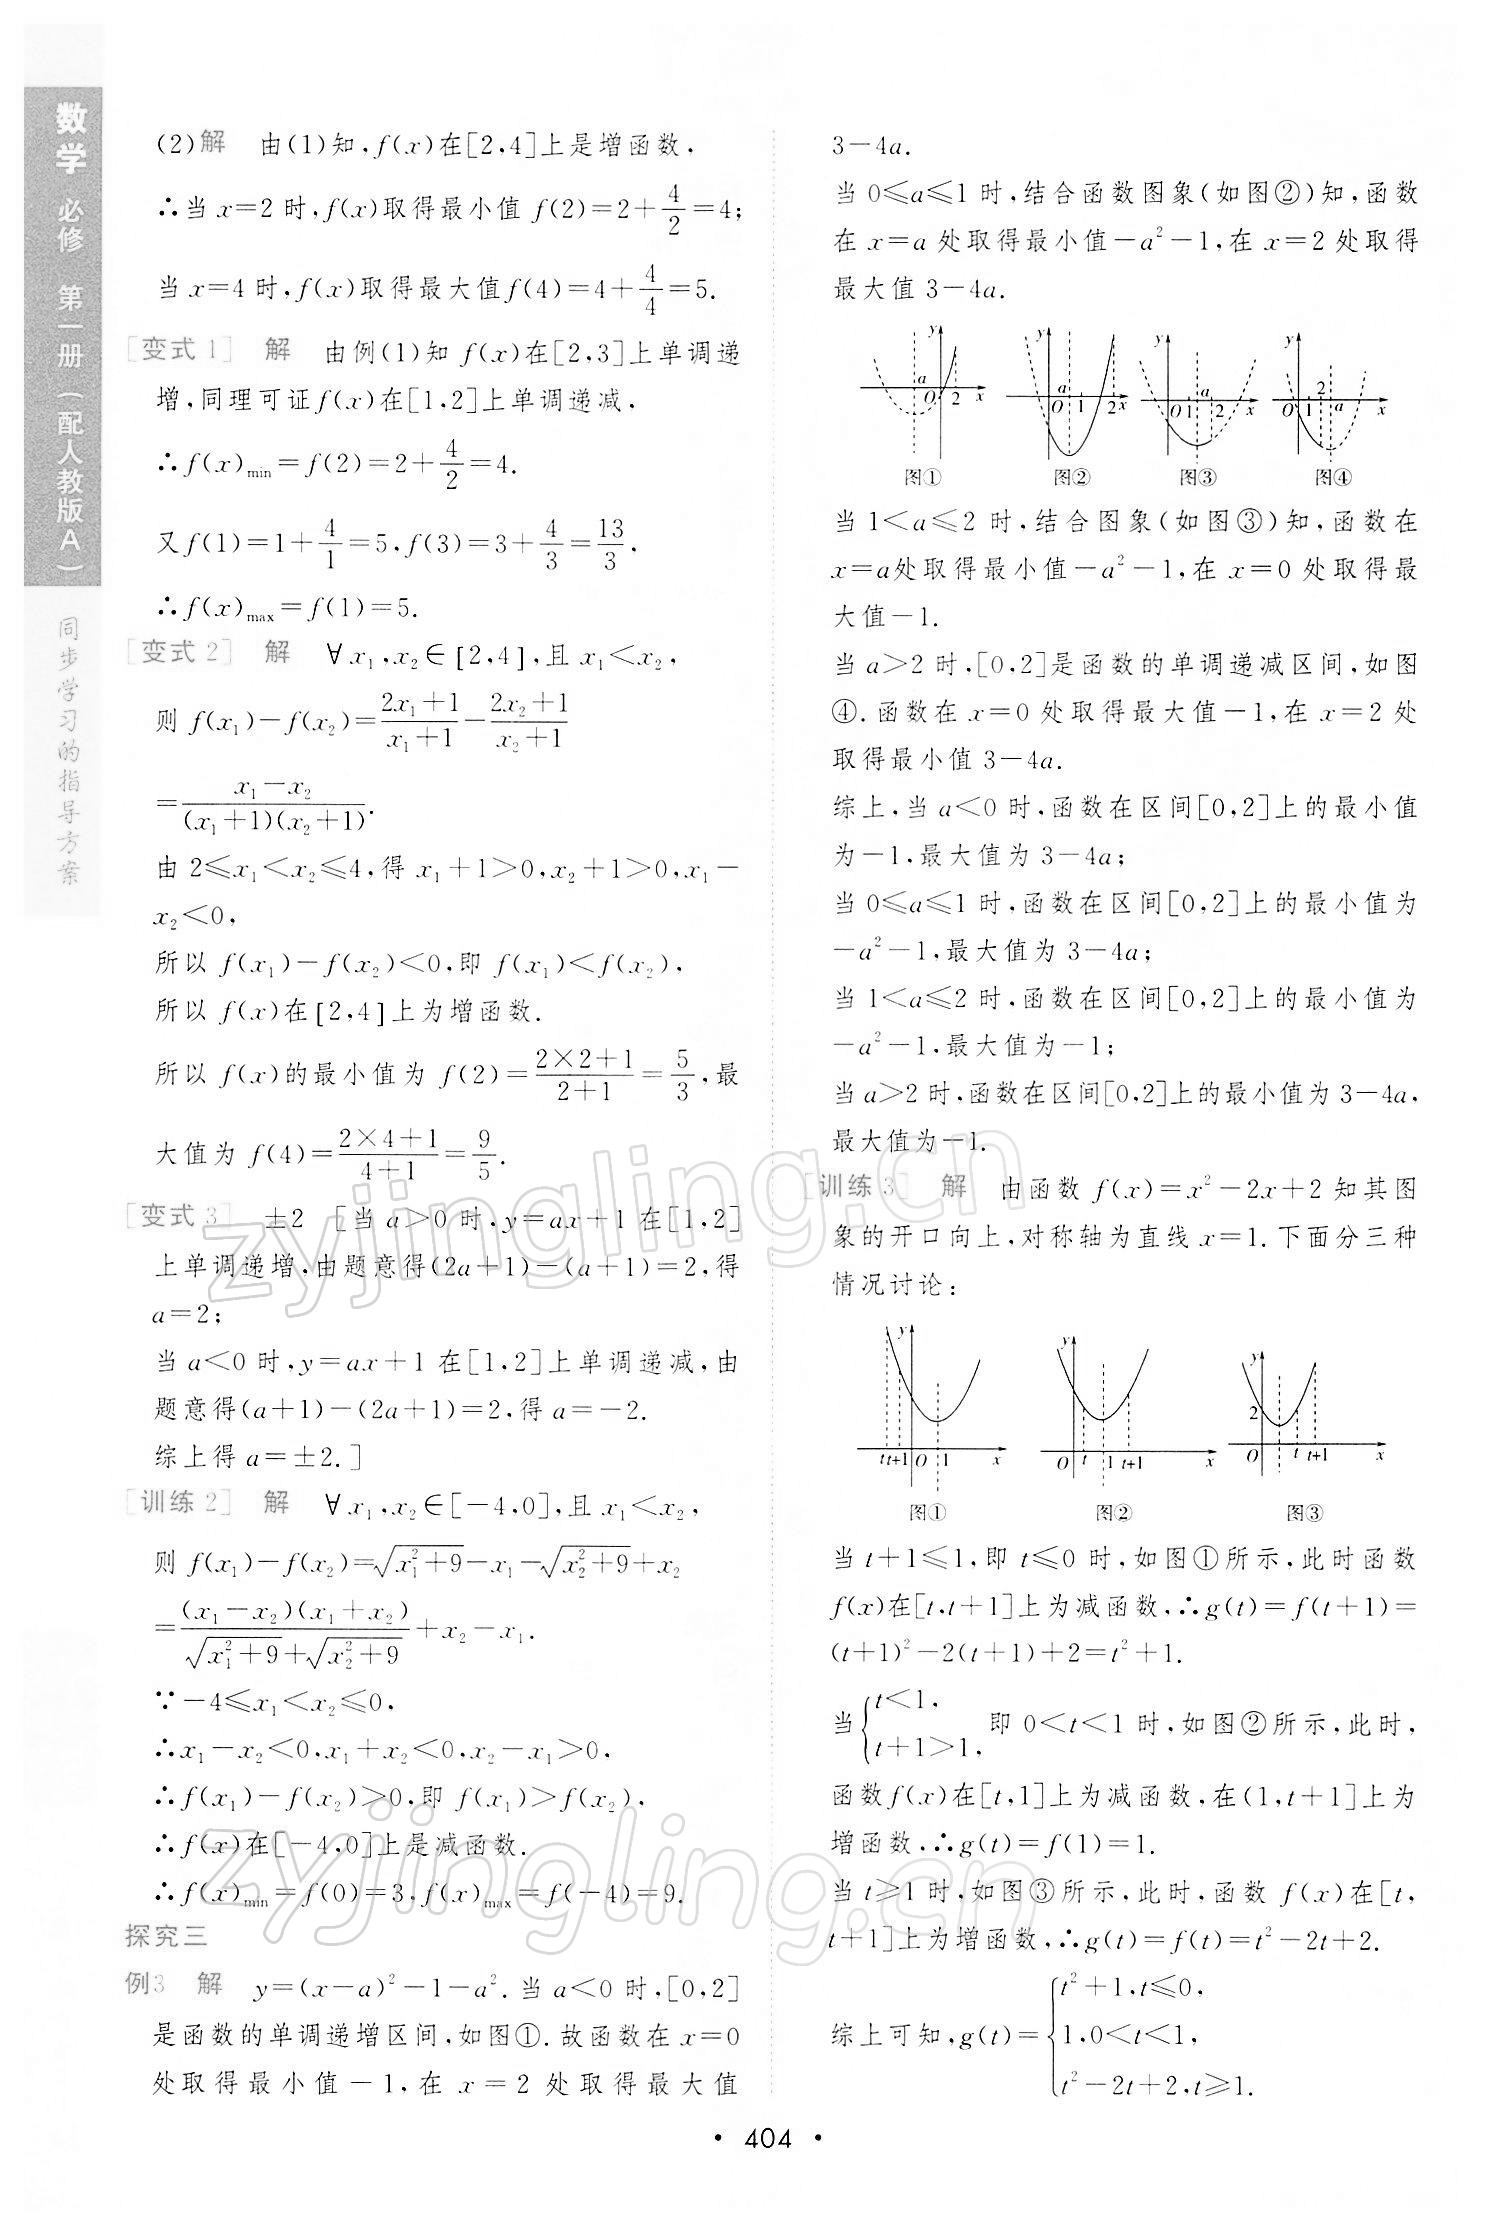 数学 必修 第一册（配人教版A）
同步学习的指导方案
(2)解 由(1)知,f(x)在[2,4]上是增函数,
∴当 x=2 时,f(x)取得最小值 f(2)=2+4/2=4;
当 x=4 时,f(x)取得最大值f(4)=4+4/4=5.
[变式1] 解 由例(1)知 f(x)在[2,3]上单调递
增,同理可证f(x)在[1,2]上单调递减,
∴f(x)min=f(2)=2+4/2=4.
又f(1)=1+4/1=5,f(3)=3+4/3=13/3.
∴f(x)max=f(1)=5.
[变式2] 解 ∀x₁,x₂∈[2,4],且 x₁<x₂,
则 f(x₁)-f(x₂)=(2x₁+1)/(x₁+1)-(2x₂+1)/(x₂+1)
=(x₁-x₂)/((x₁+1)(x₂+1)).
由 2≤x₁<x₂≤4,得 x₁+1>0,x₂+1>0,x₁-
x₂<0,
所以 f(x₁)-f(x₂)<0,即 f(x₁)<f(x₂),
所以 f(x)在[2,4]上为增函数.
所以 f(x)的最小值为 f(2)=(2×2+1)/(2+1)=5/3,最
大值为 f(4)=(2×4+1)/(4+1)=9/5.
[变式3] ±2 [当 a>0 时,y=ax+1 在[1,2]
上单调递增,由题意得(2a+1)-(a+1)=2,得
a=2;
当 a<0 时,y=ax+1 在[1,2]上单调递减,由
题意得(a+1)-(2a+1)=2,得 a=-2.
综上得 a=±2.]
[训练2] 解 ∀x₁,x₂∈[-4,0],且 x₁<x₂,
则 f(x₁)-f(x₂)=√(x₁²+9)-x₁-√(x₂²+9)+x₂
=(x₁-x₂)(x₁+x₂)/(√(x₁²+9)+√(x₂²+9))+x₂-x₁.
∵-4≤x₁<x₂≤0,
∴x₁-x₂<0,x₁+x₂<0,x₂-x₁>0,
∴f(x₁)-f(x₂)>0,即 f(x₁)>f(x₂),
∴f(x)在[-4,0]上是减函数.
∴f(x)min=f(0)=3,f(x)max=f(-4)=9.
探究三
例3 解 y=(x-a)²-1-a².当 a<0 时,[0,2]
是函数的单调递增区间,如图①.故函数在 x=0
处取得最小值-1,在 x=2 处取得最大值
3-4a.
当 0≤a≤1 时,结合函数图象(如图②)知,函数
在 x=a 处取得最小值-a²-1,在 x=2 处取得
最大值 3-4a.
y a O 2 x
y a O 1 2 x
y a O 1 2 x
y 2 O 1 a x
图① 图② 图③ 图④
当 1<a≤2 时,结合图象(如图③)知,函数在
x=a处取得最小值-a²-1,在 x=0 处取得最
大值-1.
当 a>2 时,[0,2]是函数的单调递减区间,如图
④.函数在 x=0 处取得最大值-1,在 x=2 处
取得最小值 3-4a.
综上,当 a<0 时,函数在区间[0,2]上的最小值
为-1,最大值为 3-4a;
当 0≤a≤1 时,函数在区间[0,2]上的最小值为
-a²-1,最大值为 3-4a;
当 1<a≤2 时,函数在区间[0,2]上的最小值为
-a²-1,最大值为-1;
当 a>2 时,函数在区间[0,2]上的最小值为 3-4a,
最大值为-1.
[训练3] 解 由函数 f(x)=x²-2x+2 知其图
象的开口向上,对称轴为直线 x=1.下面分三种
情况讨论:
y t t+1 O 1 x
y O t 1 t+1 x
y 2 O t t+1 x
图① 图② 图③
当 t+1≤1,即 t≤0 时,如图①所示,此时函数
f(x)在[t,t+1]上为减函数,∴g(t)=f(t+1)=
(t+1)²-2(t+1)+2=t²+1.
当{t<1, t+1>1, 即 0<t<1 时,如图②所示,此时,
函数f(x)在[t,1]上为减函数,在(1,t+1]上为
增函数,∴g(t)=f(1)=1.
当 t≥1 时,如图③所示,此时,函数 f(x)在[t,
t+1]上为增函数,∴g(t)=f(t)=t²-2t+2.
综上可知,g(t)={t²+1,t≤0, 1,0<t<1, t²-2t+2,t≥1.
zyjingling.cn
zyjingling.cn
• 404 •